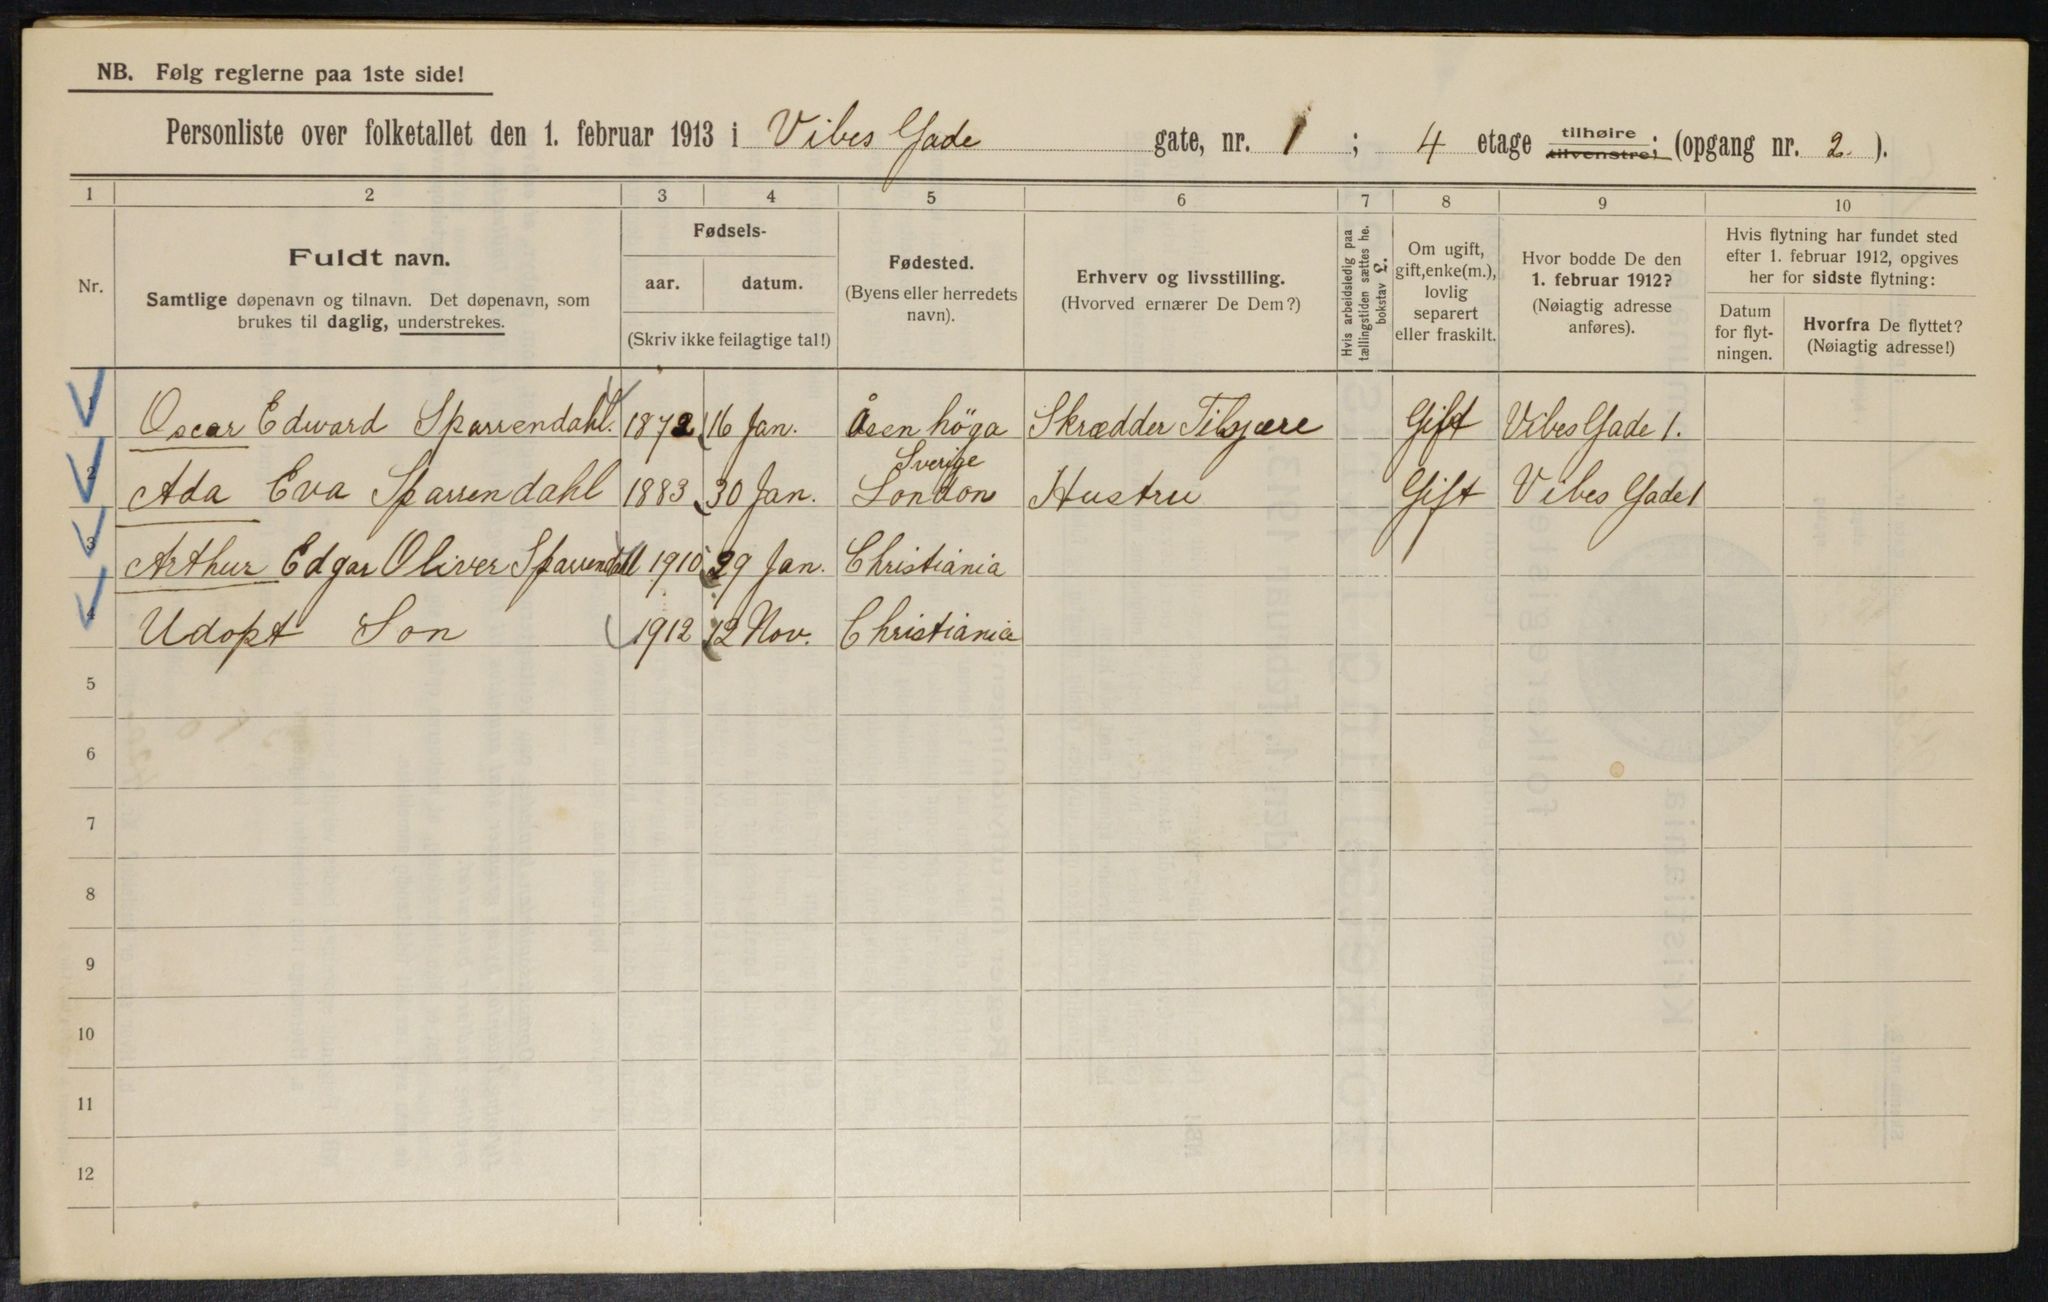 NB. Følg reglerne paa 1ste side!
Personliste over folketallet den 1. februar 1913 i Vibes Gade gate, nr. 1 ; 4 etage tilhøire tilvenstre; (opgang nr. 2. ).
1 2 3 4 5 6 7 8 9 10
Nr.
Fuldt navn.
Samtlige døpenavn og tilnavn. Det døpenavn, som
brukes til daglig, understrekes.
Fødsels-
aar. datum.
(Skriv ikke feilagtige tal!)
Fødested.
(Byens eller herredets
navn).
Erhverv og livsstilling.
(Hvorved ernærer De Dem?)
Hvis arbeidsledig paa
tællingstiden sættes he.
bokstav L.
Om ugift,
gift, enke(m.),
lovlig
separert
eller fraskilt.
Hvor bodde De den
1. februar 1912?
(Nøiagtig adresse
anføres).
Hvis flytning har fundet sted
efter 1. februar 1912, opgives
her for sidste flytning:
Datum
for flyt-
ningen.
Hvorfra De flyttet?
(Nøiagtig adresse!)
1 Oscar Edward Sparrendahl. 1872 16 Jan. Åsen höga Skrædder Tilsjære Gift Vibes Gade 1.
Sverige
2 Ada Eva Sparrendahl 1883 30 Jan. London Hustru Gift Vibes Gade 1
3 Arthur Edgar Oliver Sparrendahl 1910 29 Jan. Christiania
4 Udopt Son 1912 12 Nov. Christiania
5
6
7
8
9
10
11
12